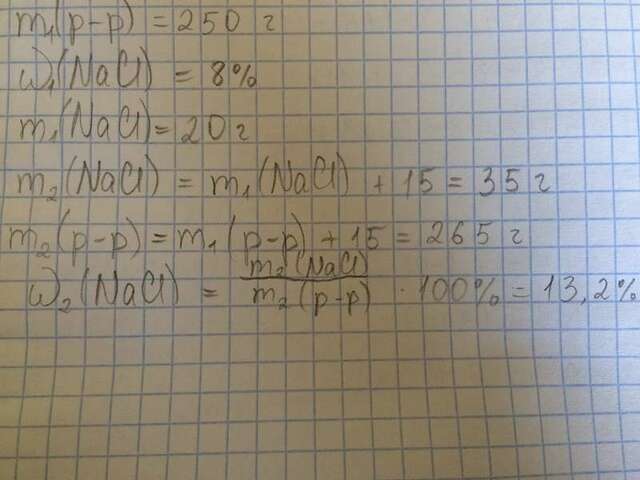 m₁(р-р) = 250 г
ω₁(NaCl) = 8%
m₁(NaCl) = 20 г
m₂(NaCl) = m₁(NaCl) + 15 = 35 г
m₂(р-р) = m₁(р-р) + 15 = 265 г
ω₂(NaCl) = m₂(NaCl) / m₂(р-р) · 100% = 13,2%